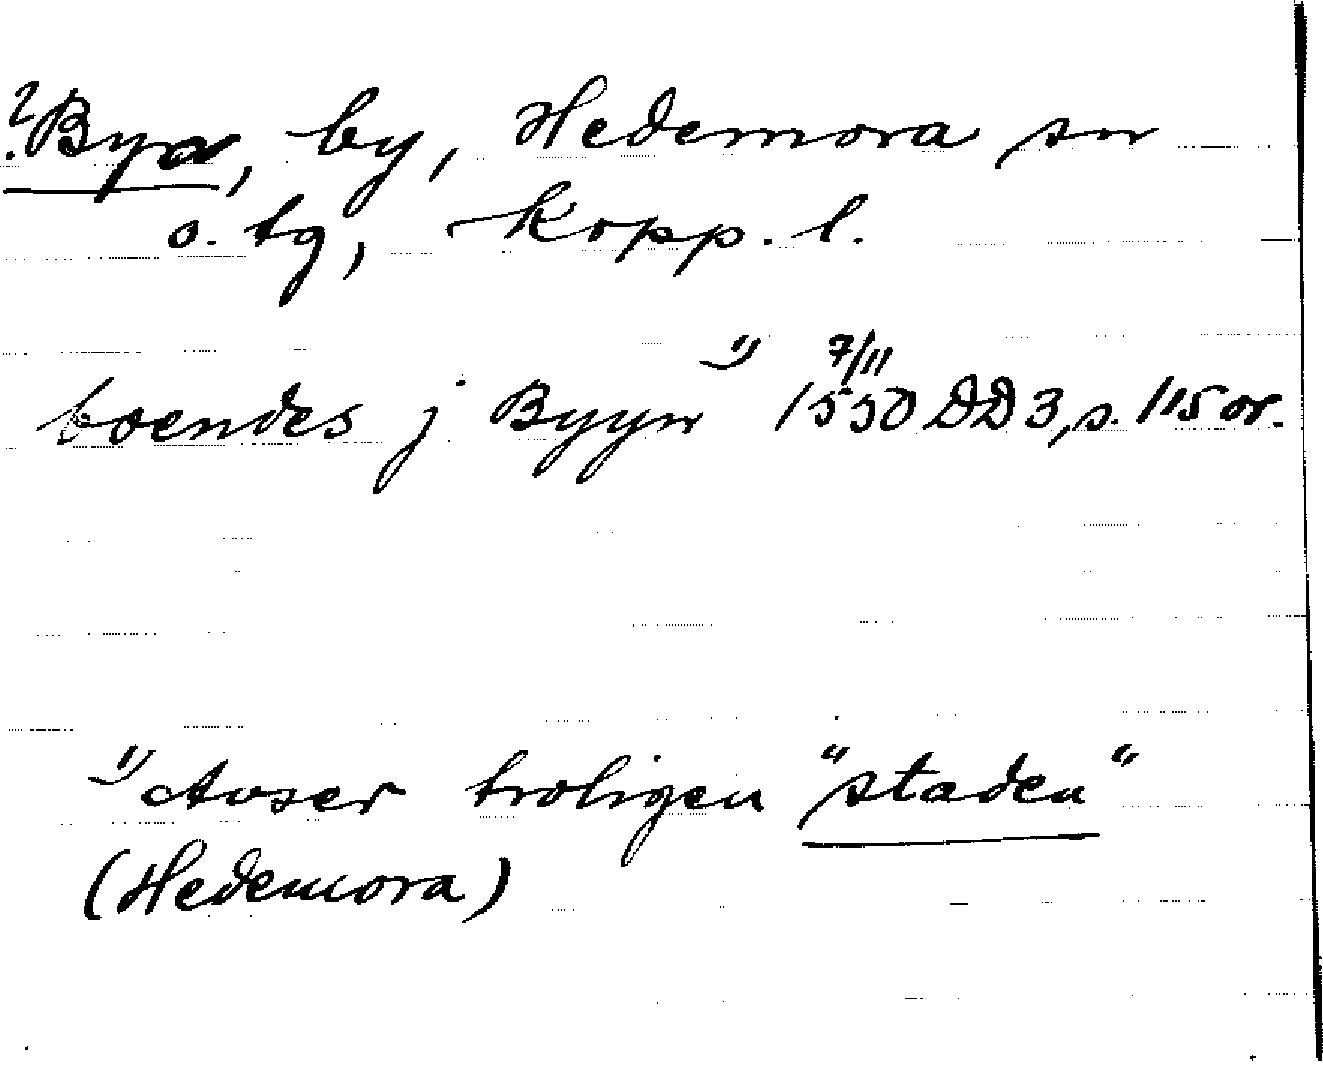 ? Bya, by, Hedemora sn
o. tg, Kopp. l.
boendes j Byyn 1) 7/11 1550 DD 3, s. 115 or.
1) Avser troligen "staden"
(Hedemora)